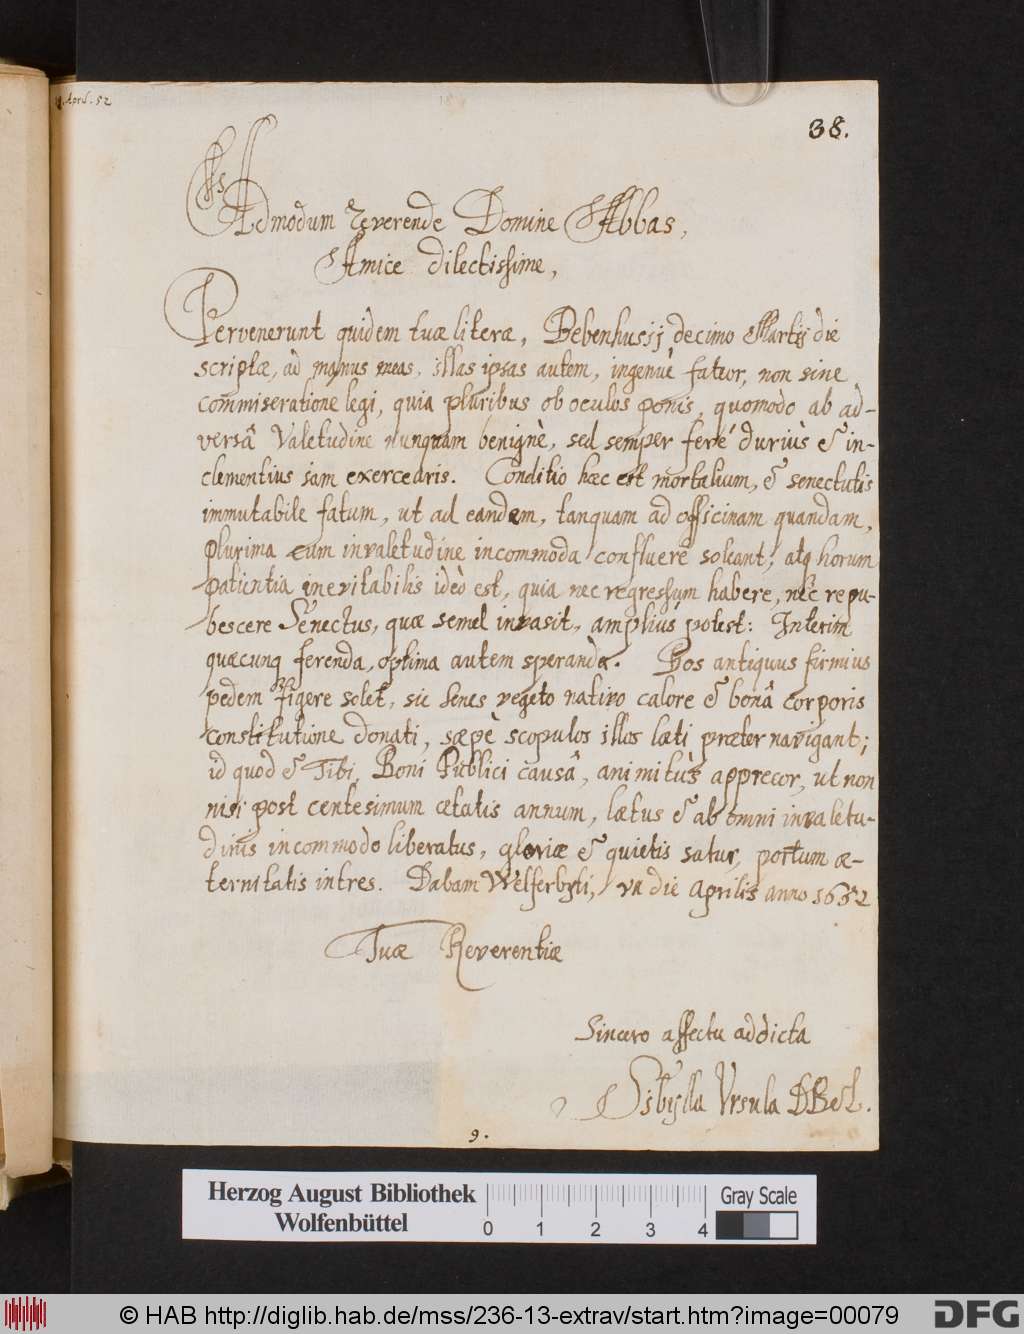 Apriˡ. 52
38.
Admodum Reverende Domine Abbas,
Amice dilectissime,
Pervenerunt quidem tuæ literæ, Bebenhusij decimo Martij die
scriptæ, ad manus meas, illas ipsas autem, ingenuè fateor, non sine
commiseratione legi, quia pluribus ob oculos ponis, quomodo ab ad-
versâ Valetudine nunquam benignè, sed semper ferè duriùs & in-
clementius iam exercearis. Conditio hæc est mortalium, & senectutis
immutabile fatum, ut ad eandem, tanquam ad officinam quandam,
plurima cum invaletudine incommoda confluere soleant; atq horum
patientia inevitabilis ideò est, quia nec regressum habere, nec repu-
bescere Senectus, quæ semel invasit, ampliùs potest: Interim
quæcunq ferenda, optima autem speranda. Bos antiquus firmius
pedem figere solet, sic Senes vegeto nativo calore & bonâ corporis
constitutione donati, sæpè scopulos illos læti præter navigant;
id quod & Tibi, Boni Publici causâ, animitùs apprecor, ut non
nisi post centesimum ætatis annum, lætus & ab omni invaletu-
dinis incommodo liberatus, gloriæ & quietis satur, portum æ-
ternitatis intres. Dabam Welferbyti, die Aprilis anno 1652
Tuæ Reverentiæ
Sincero affectu addicta
Sibylla Ursula DBeL.
9.
Herzog August Bibliothek
Wolfenbüttel
0 1 2 3 4
Gray Scale
© HAB http://diglib.hab.de/mss/236-13-extrav/start.htm?image=00079
DFG